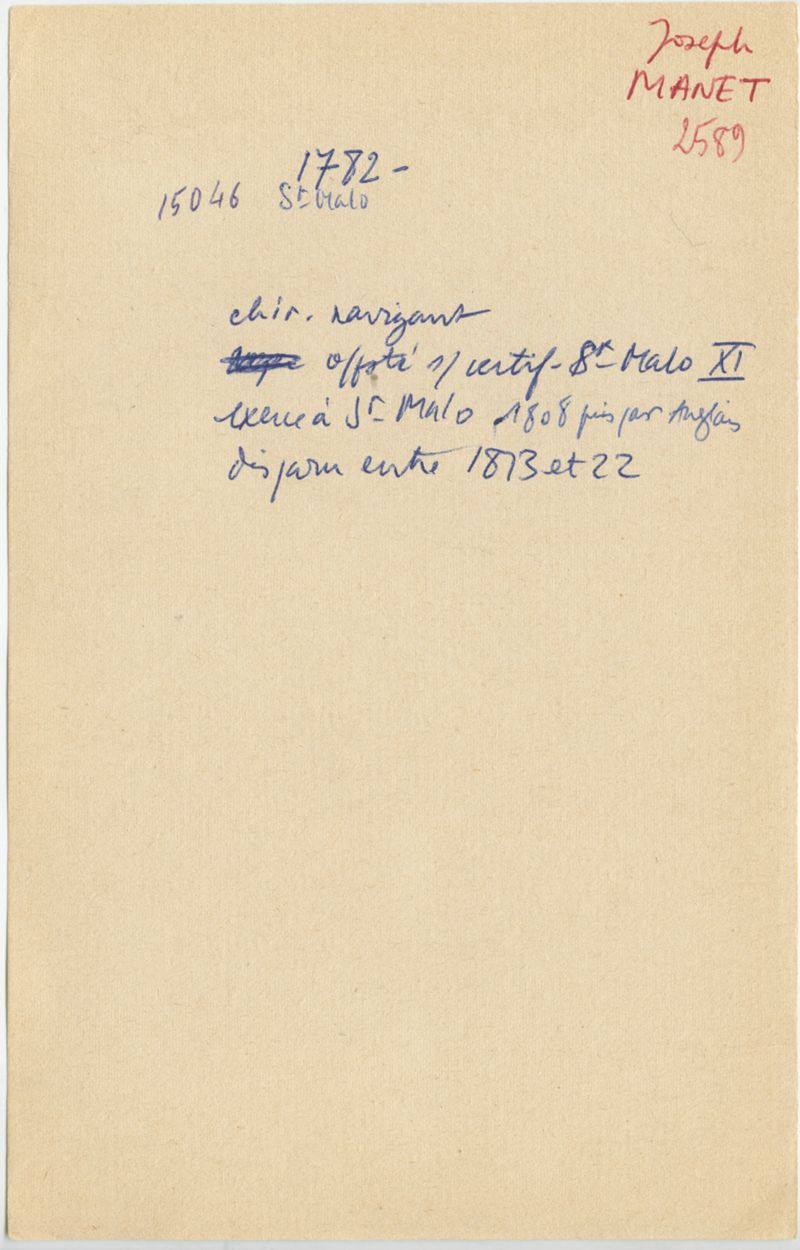 Joseph
MANET
2589
1782 -
15046 St Malo
chir. navigant
s/ certif - St Malo XI
exerce à St Malo 1808 pris par Anglais
disparu entre 1813 et 22